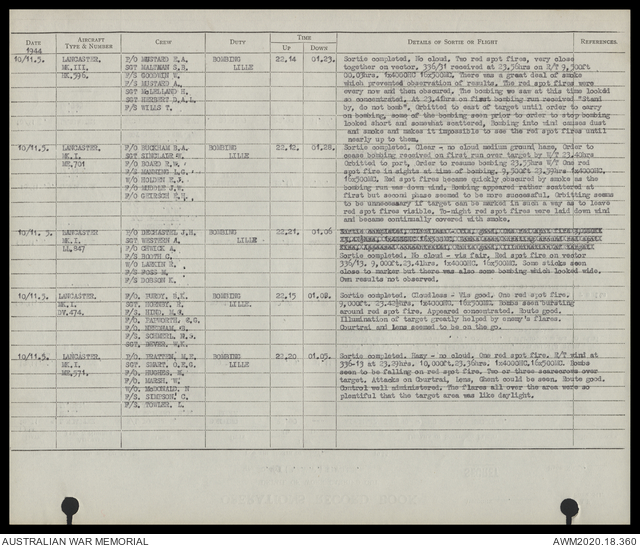 DATE 1944 AIRCRAFT TYPE & NUMBER CREW DUTY TIME UP DOWN DETAILS OF SORTIE OR FLIGHT REFERENCES.
10/11.5. LANCASTER. F/O MUSTARD E.A. BOMBING 22.14 01.23. Sortie completed, No cloud, Two red spot fires, very close
MK.III. SGT MALTMAN S.B. LILLE together on vector. 336/31 received at 23.56hrs on R/T 9,500ft
HK.596. F/S GOODWIN W. 00.03hrs. 1x4000HC 16x500HC. There was a great deal of smoke
F/S MUSTARD A. which prevented observation of results. The red spot fires were
SGT McLELLAND H. every now and then obscured. The bombing we saw at this time looked
SGT HERBERT D.A.L. so concentrated. At 23.41hrs on first bombing run received "Stand
F/S WILLS T. by, do not bomb". Orbited to east of target until order to carry
on bombing, some of the bombing seen prior to order to stop bombing
looked short and somewhat scattered, Bombing into wind causes dust
and smoke and makes it impossible to see the red spot fires until
nearly up to them.
10/11.5. LANCASTER. F/O BUCKHAM B.A. BOMBING 22.12. 01.28. Sortie completed. Clear - no cloud medium ground haze, Order to
MK.I. SGT SINCLAIR W. LILLE cease bombing received on first run over target by W/T 23.40hrs
ME.701 F/O BOARD R.W. Orbited to port, Order to resume bombing 23.55hrs W/T One red
F/S MANNING L.G. spot fire in sights at time of bombing. 9,500ft 23.59hrs 1x4000HC,
W/O HOLDEN E.J. 16x500HC. Red spot fires became quickly obscured by smoke as the
F/O MUDDLE J.W. bombing run was down wind. Bombing appeared rather scattered at
F/O GEIRSCH R.H. first but second phase seemed to be more successful. Orbiting seems
to be unnecessary if target can be marked in such a way as to leave
red spot fires visible. To-night red spot fires were laid down wind
and became continually covered with smoke.
10/11. 5. LANCASTER W/O DECHASTEL J.M. BOMBING 22.21. 01.06
MK.I. SGT WESTERN A. LILLE.
LL.847 F/O CERICK A. Sortie completed. No cloud - vis fair. Red spot fire on vector
F/S BOOTH G. 336/13. 9,000ft. 23.41hrs. 1x4000HC, 16x500HC. Some sticks seen
W/O LARKIN R. close to marker but there was also some bombing which looked wide.
F/S FOSS M. Own results not observed.
F/S DOBSON K.
10/11.5. LANCASTER. F/O. PURDY, S.K. BOMBING 22.15 01.09. Sortie completed. Cloudless - Vis good. One red spot fire.
MK.I. LILLE. 9,000ft. 23.42½hrs, 1x4000HC, 16x500HC. Bombs seen bursting
DV.474. F/S. HIND, around red spot fire. Appeared concentrated. Route good.
F/O. PAPWORTH, E.G. Illumination of target greatly helped by enemy's flares.
F/O. NEEDHAM, Courtrai and Lens seemed to be on the go.
SGT. BEVER, W.K.
10/11.5. LANCASTER. F/O. BRATTEN, M.E. BOMBING 22.20 01.05. Sortie completed. Hazy - no cloud. One red spot fire. R/T wind at
MK.I. SGT. SMART, O.K.G. LILLE 336-13 at 23.29hrs. 10,000ft.23.36hrs. 1x4000HC.16x500HC. Bombs
ME.571. F/O. HUGHES, H. seen to be falling on red spot fire. Two or three scarecrows over
F/O. MARSH, W. target. Attacks on Courtrai, Lens, Ghent could be seen. Route good.
W/O. McDONALD, N Control well administered. The flares all over the area were so
F/S. SIMPSON, C. plentiful that the target area was like daylight.
F/S. TOWLER, L.
AUSTRALIAN WAR MEMORIAL AWM2020.18.360